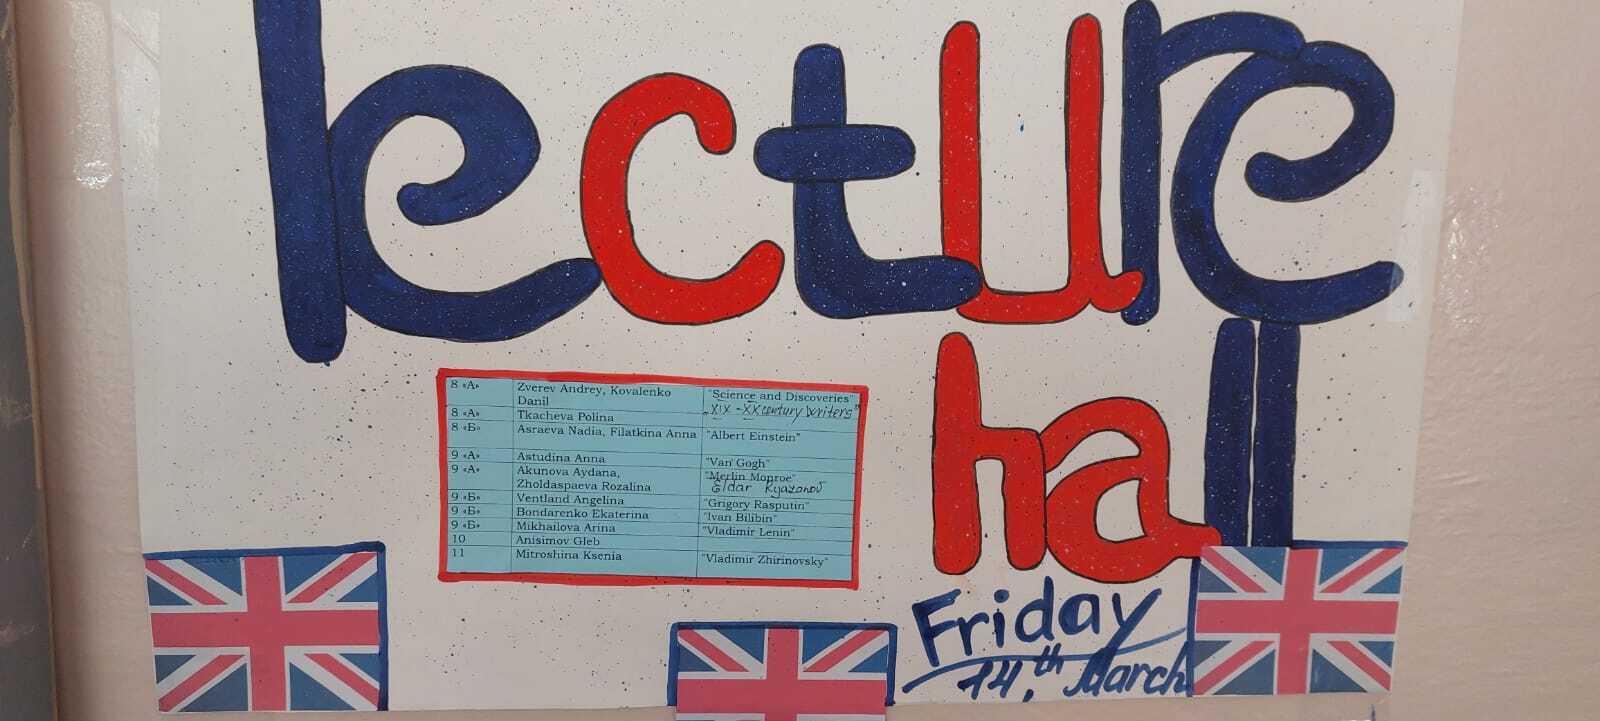 lecture
hall
8 «А» Zverev Andrey, Kovalenko Danil "Science and Discoveries"
8 «А» Tkacheva Polina „XIX - XX century writers"
8 «Б» Asraeva Nadia, Filatkina Anna "Albert Einstein"
9 «А» Astudina Anna "Van Gogh"
9 «А» Akunova Aydana, "Merlin Monroe"
Zholdaspaeva Rozalina Eldar Ryazanov
9 «Б» Ventland Angelina "Grigory Rasputin"
9 «Б» Bondarenko Ekaterina "Ivan Bilibin"
9 «Б» Mikhailova Arina "Vladimir Lenin"
10 Anisimov Gleb
11 Mitroshina Ksenia "Vladimir Zhirinovsky"
Friday
14th, March